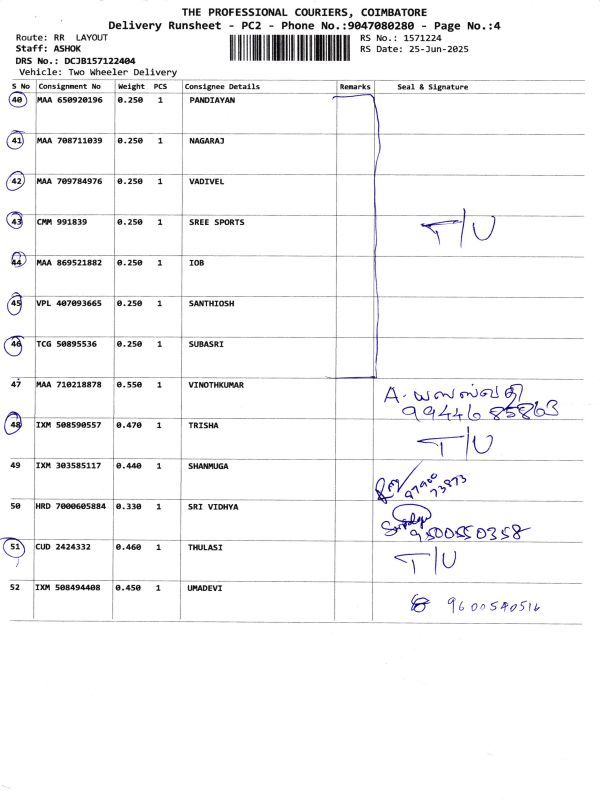 THE PROFESSIONAL COURIERS, COIMBATORE
Delivery Runsheet - PC2 - Phone No.:9047080280 - Page No.:4
Route: RR LAYOUT
Staff: ASHOK
DRS No.: DCJB157122404
Vehicle: Two Wheeler Delivery
RS No.: 1571224
RS Date: 25-Jun-2025
S No Consignment No Weight PCS Consignee Details Remarks Seal & Signature
40 MAA 650920196 0.250 1 PANDIAYAN
41 MAA 708711039 0.250 1 NAGARAJ
42 MAA 709784976 0.250 1 VADIVEL
43 CMM 991839 0.250 1 SREE SPORTS T/U
44 MAA 869521882 0.250 1 IOB
45 VPL 407093665 0.250 1 SANTHIOSH
46 TCG 50895536 0.250 1 SUBASRI
47 MAA 710218878 0.550 1 VINOTHKUMAR A.
99446 85863
48 IXM 508590557 0.470 1 TRISHA T/U
49 IXM 303585117 0.440 1 SHANMUGA
97900
73873
50 HRD 7000605884 0.330 1 SRI VIDHYA
9500550358
51 CUD 2424332 0.460 1 THULASI T/U
52 IXM 508494408 0.450 1 UMADEVI